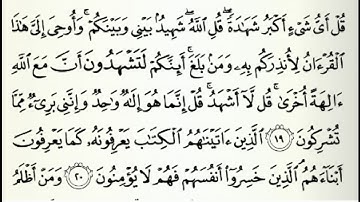 قُلْ أَيُّ شَيْءٍ أَكْبَرُ شَهَٰدَةً ۖ قُلِ ٱللَّهُ ۖ شَهِيدٌۢ بَيْنِي وَبَيْنَكُمْ ۚ وَأُوحِيَ إِلَيَّ هَٰذَا
ٱلْقُرْءَانُ لِأُنذِرَكُم بِهِۦ وَمَنۢ بَلَغَ ۚ أَئِنَّكُمْ لَتَشْهَدُونَ أَنَّ مَعَ ٱللَّهِ
ءَالِهَةً أُخْرَىٰ ۚ قُل لَّآ أَشْهَدُ ۚ قُلْ إِنَّمَا هُوَ إِلَٰهٌ وَٰحِدٌ وَإِنَّنِي بَرِيٓءٌ مِّمَّا
تُشْرِكُونَ ۝١٩ ٱلَّذِينَ ءَاتَيْنَٰهُمُ ٱلْكِتَٰبَ يَعْرِفُونَهُۥ كَمَا يَعْرِفُونَ
أَبْنَآءَهُمُ ۘ ٱلَّذِينَ خَسِرُوٓا۟ أَنفُسَهُمْ فَهُمْ لَا يُؤْمِنُونَ ۝٢٠ وَمَنْ أَظْلَمُ